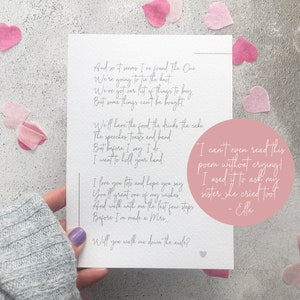 And so it seems I've found The One
We're going to tie the knot
We've got our list of things to buy
But some things can't be bought.
We'll have the food the drinks the cake
The speeches toasts and band
But before I say I do
I want to hold your hand
I love you lots and hope you say
You'll grant one of my wishes
And walk with me the last few steps
Before I'm made a Mrs
Will you walk me down the aisle?
"I can't even read this
poem without crying!
I used it to ask my
sister, she cried too!"
- Ella